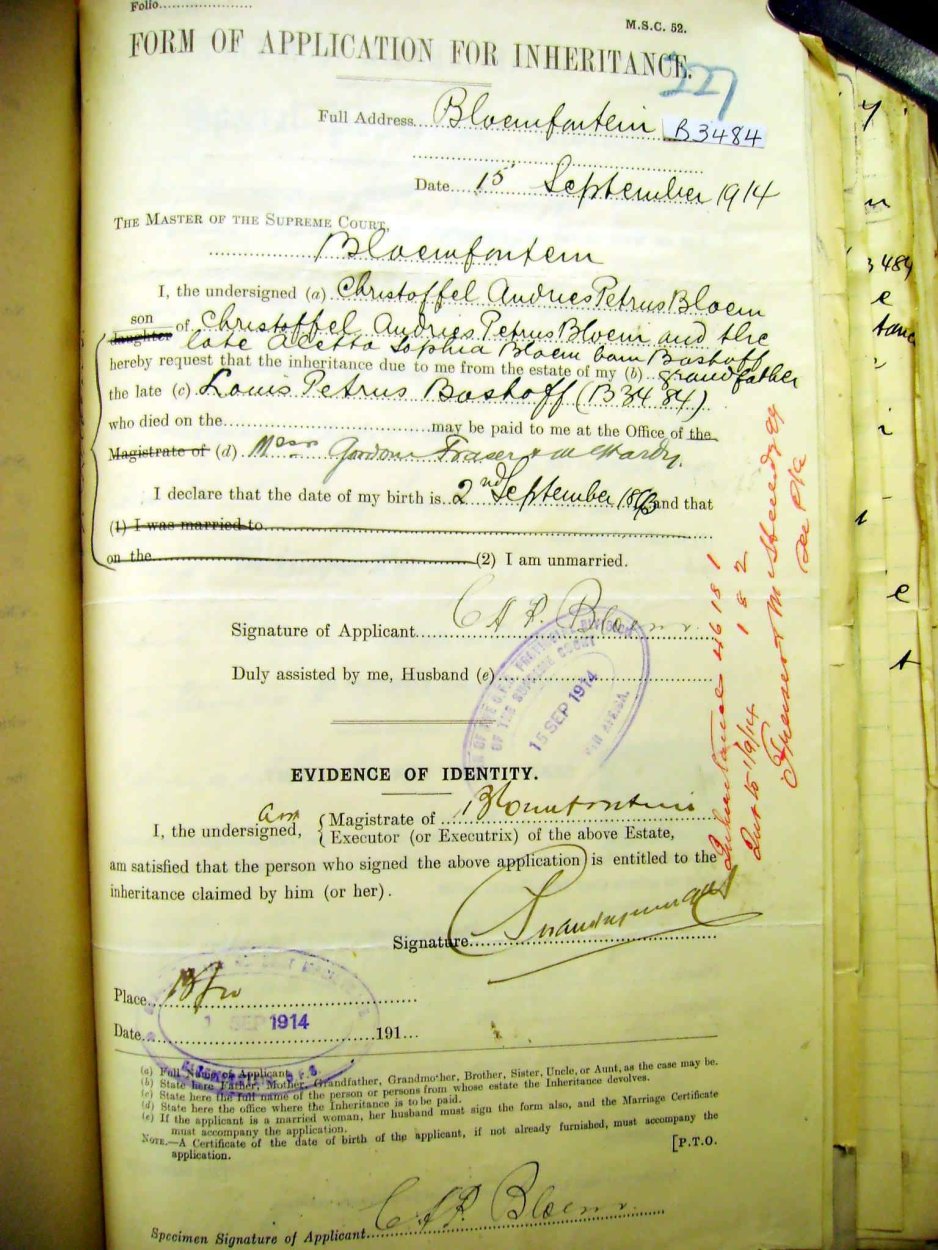 Folio....................
M.S.C. 52.
FORM OF APPLICATION FOR INHERITANCE.
227
Full Address Bloemfontein B3484
Date 15 September 1914
THE MASTER OF THE SUPREME COURT,
Bloemfontein
I, the undersigned (a) Christoffel Andries Petrus Bloem
son
daughter of Christoffel Andries Petrus Bloem and the
late Aletta Sophia Bloem born Boshoff
hereby request that the inheritance due to me from the estate of my (b) grandfather
the late (c) Louis Petrus Boshoff (B3484)
who died on the.................................may be paid to me at the Office of the
Magistrate of (d) Messrs Gordon Fraser & McHardy.
I declare that the date of my birth is 2nd September and that
(1) I was married to
on the (2) I am unmarried.
Signature of Applicant C A P. Bloem
Duly assisted by me, Husband (e)
OF THE SUPREME COURT
15 SEP 1914
EVIDENCE OF IDENTITY.
I, the undersigned, Asst { Magistrate of Bloemfontein
{ Executor (or Executrix) of the above Estate,
am satisfied that the person who signed the above application is entitled to the
inheritance claimed by him (or her).
Signature
Place Bfn
SEP 1914
Date 191...
(a) Full Name of Applicant.
(b) State here Father, Mother, Grandfather, Grandmother, Brother, Sister, Uncle, or Aunt, as the case may be.
(c) State here the full name of the person or persons from whose estate the Inheritance devolves.
(d) State here the office where the Inheritance is to be paid.
(e) If the applicant is a married woman, her husband must sign the form also, and the Marriage Certificate
must accompany the application.
NOTE.—A Certificate of the date of birth of the applicant, if not already furnished, must accompany the
application.
[P.T.O.
Specimen Signature of Applicant C A P. Bloem
Inheritance 46 18 1
Int to 1/9/14 1 8 2